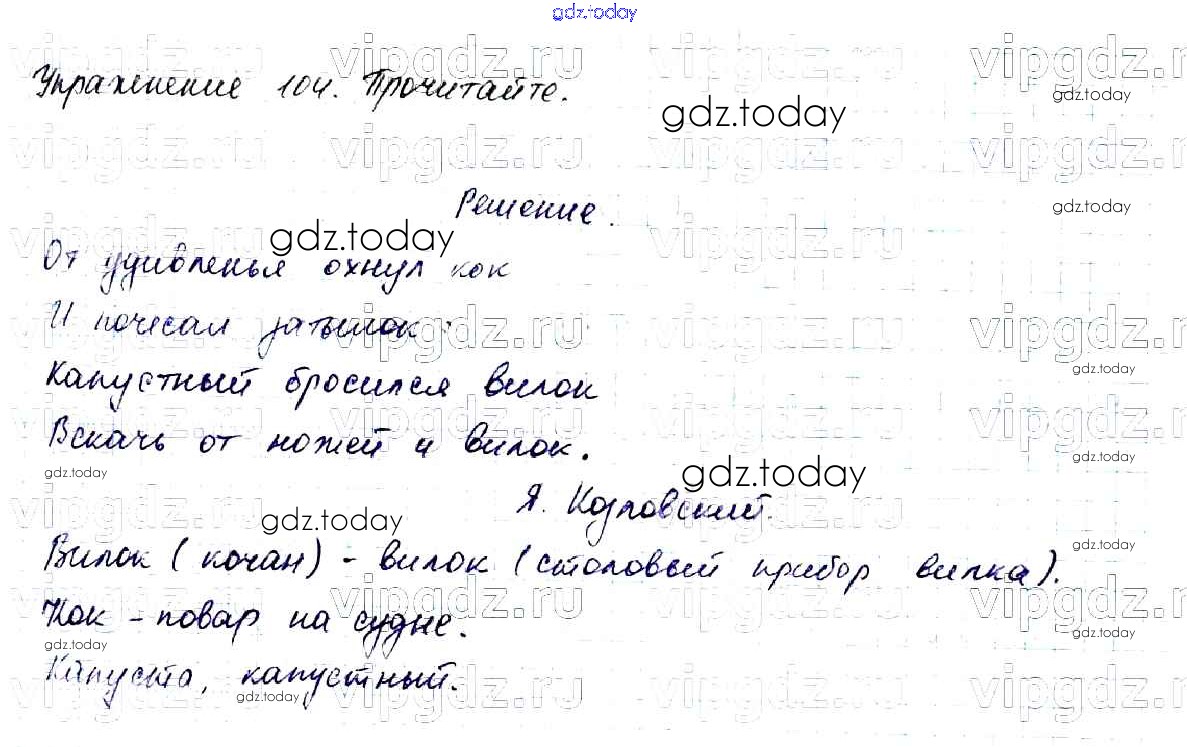 gdz.today
Упражнение 104. Прочитайте.
Решение.
От удивленья охнул кок
И почесал затылок:
Капустный бросился вилок
Вскачь от ножей и вилок.
Я. Козловский.
Вилок (кочан) - вилок (столовый прибор вилка).
Кок - повар на судне.
Капуста, капустный.